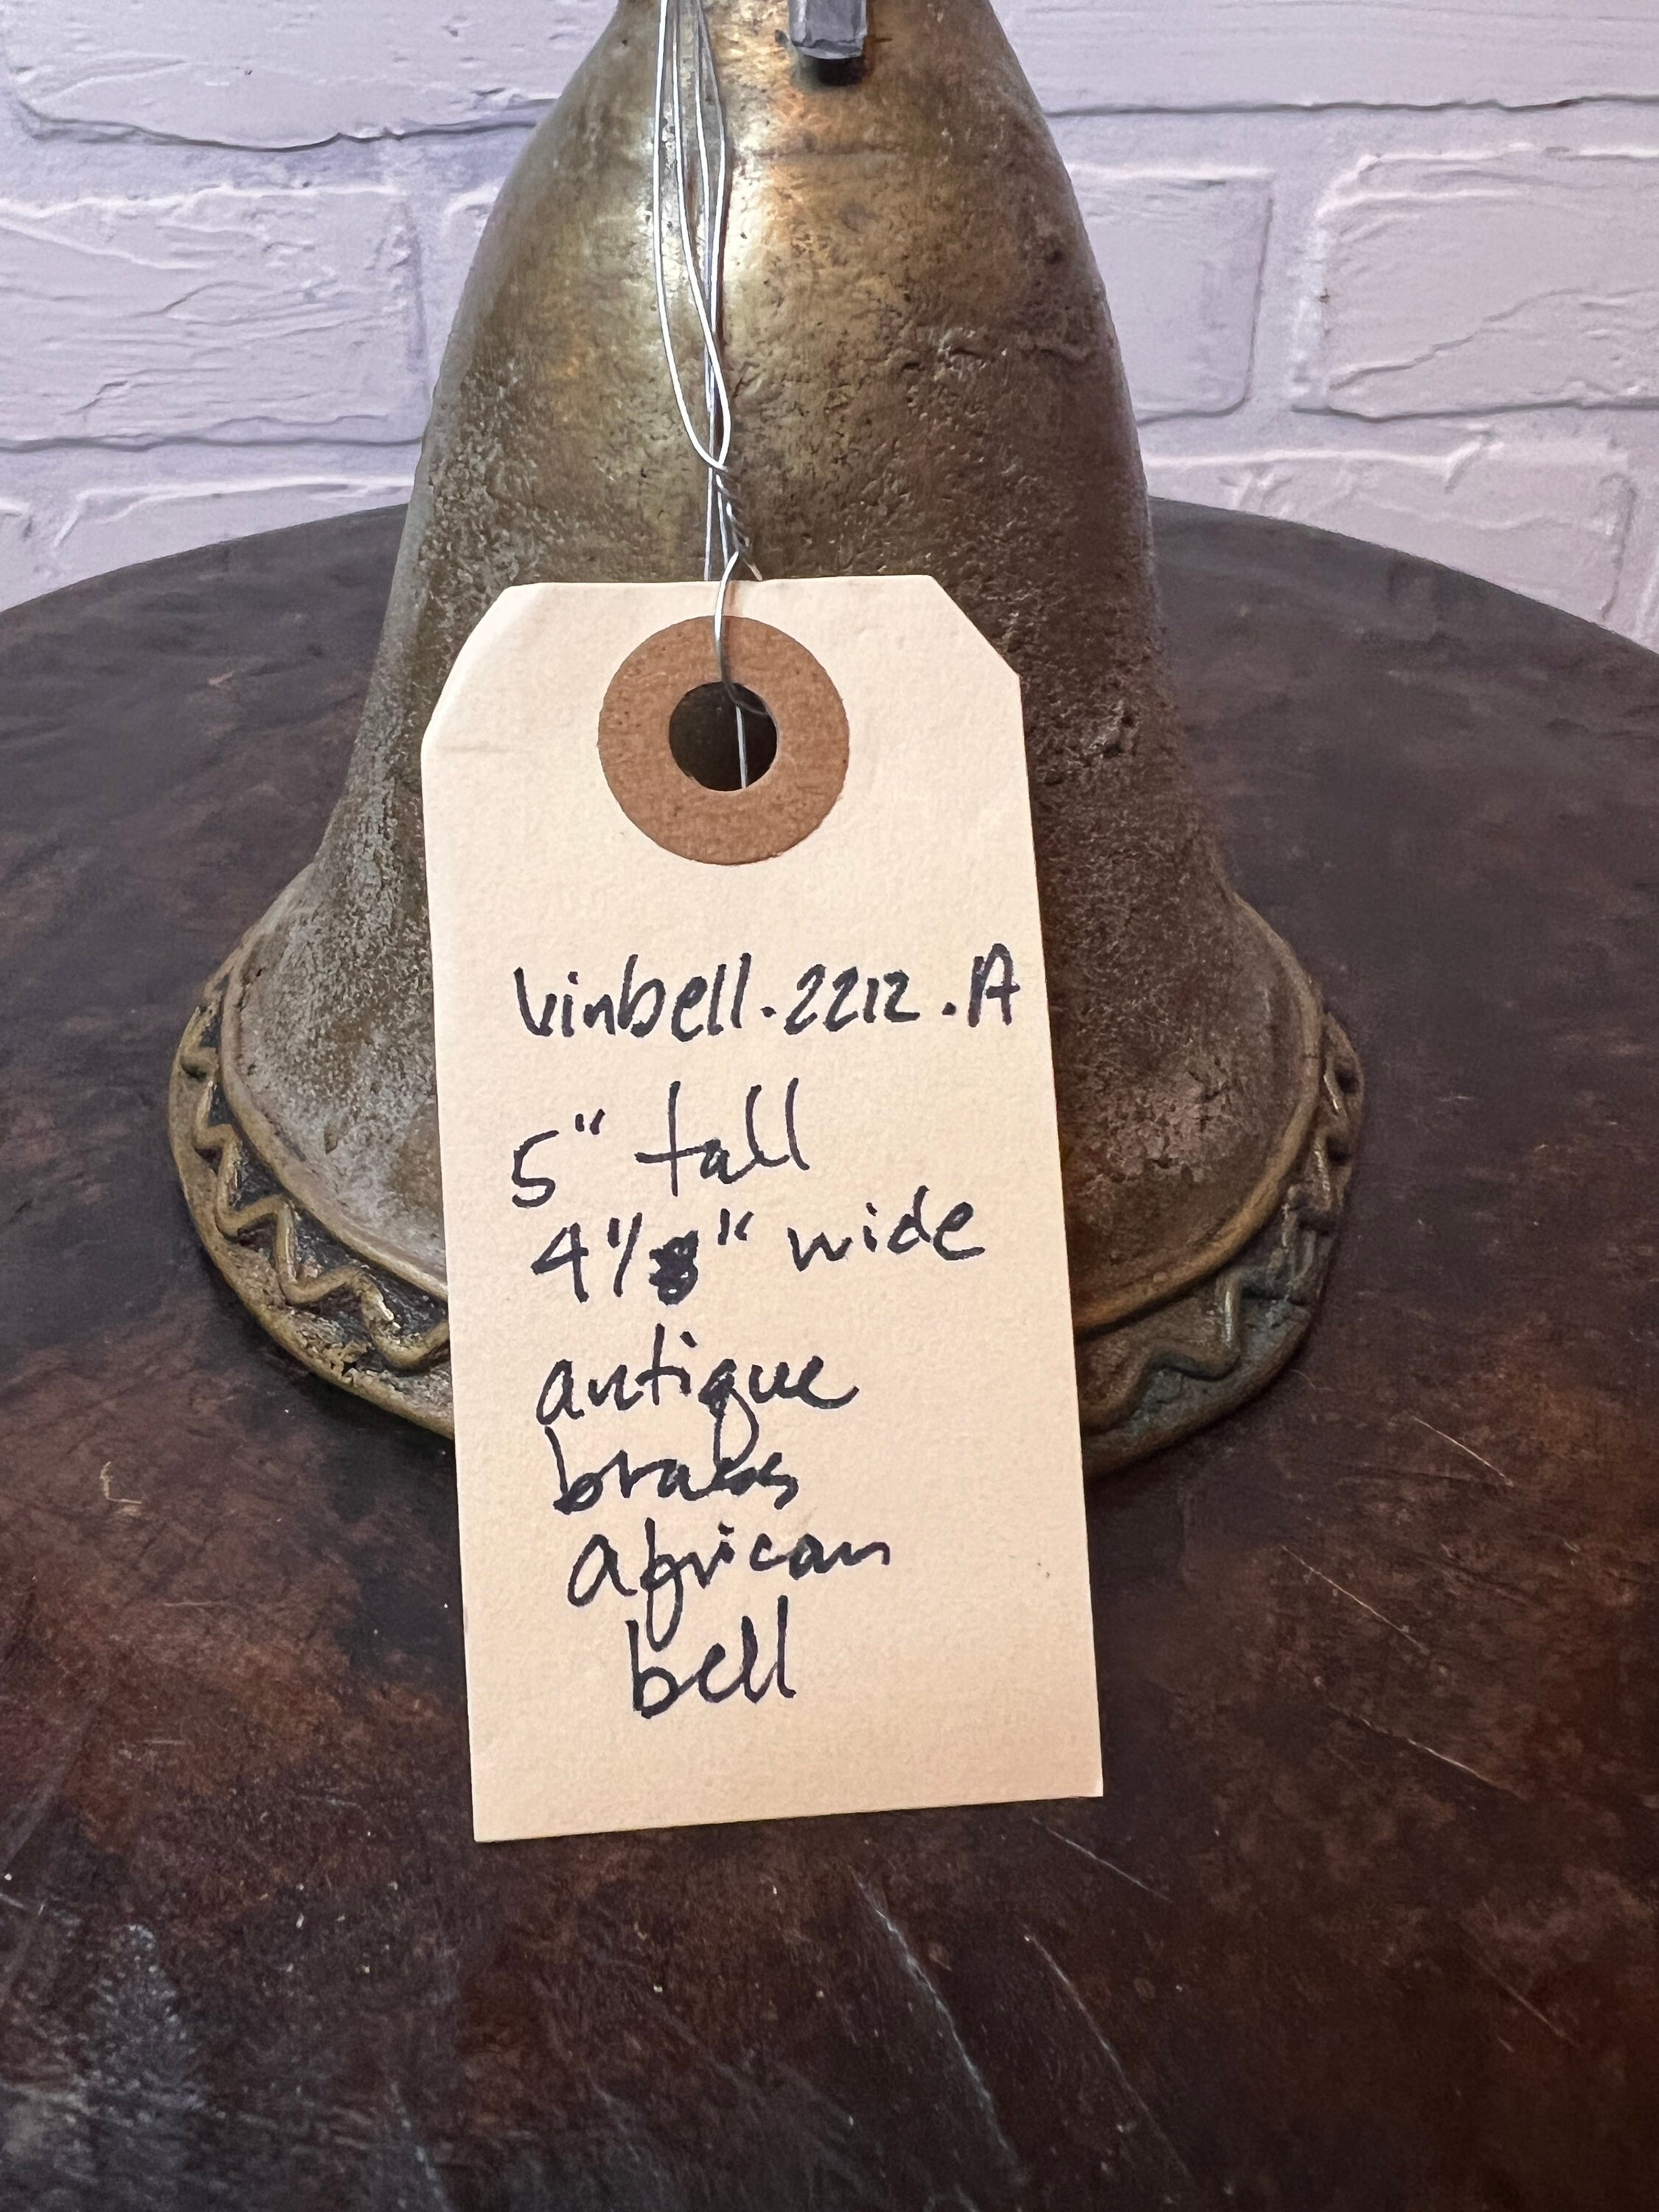 vinbell.2212.A
5" tall
4 1/8" wide
antique
brass
african
bell